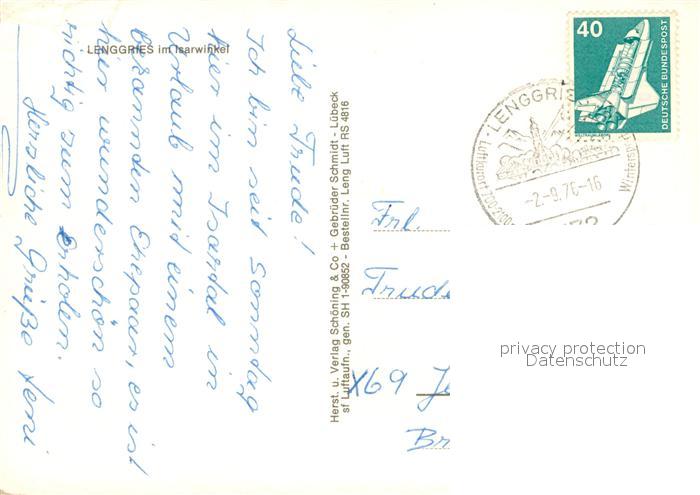 LENGGRIES im Isarwinkel
Liebe Trude!
Ich bin seit Sonntag
hier im Isartal in
Urlaub mit einem
bekannten Ehepaar, es ist
hier wunderschön so
richtig zum Erholen.
Herzliche Grüße Leni
Herst. u. Verlag Schöning & Co + Gebrüder Schmidt - Lübeck
sf Luftaufn., gen. SH 1-90852 - Bestellnr. Leng Luft RS 4816
40
DEUTSCHE BUNDESPOST
LENGGRIES
Luftkurort 700-
-2.-9.76-16
Frl.
Trude
X69 Je
Br
privacy protection
Datenschutz